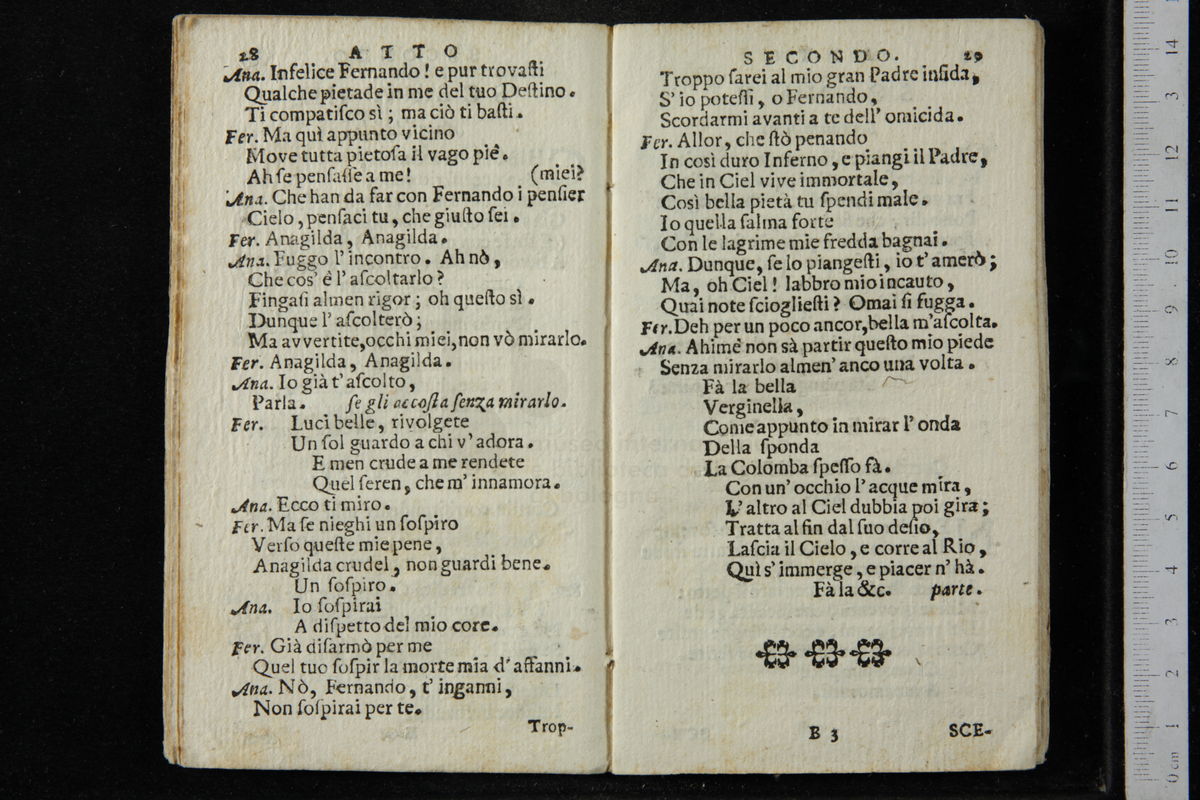 28 ATTO
Ana. Infelice Fernando! e pur trovaſti
Qualche pietade in me del tuo Deſtino.
Ti compatiſco sì; ma ciò ti baſti.
Fer. Ma quì appunto vicino
Move tutta pietoſa il vago piè.
Ah ſe penſaſſe a me! (miei?
Ana. Che han da far con Fernando i penſier
Cielo, penſaci tu, che giuſto ſei.
Fer. Anagilda, Anagilda.
Ana. Fuggo l'incontro. Ah nò,
Che cos' è l'aſcoltarlo?
Fingaſi almen rigor; oh queſto sì.
Dunque l'aſcolterò;
Ma avvertite, occhi miei, non vò mirarlo.
Fer. Anagilda, Anagilda.
Ana. Io già t'aſcolto,
Parla. ſe gli accoſta ſenza mirarlo.
Fer. Luci belle, rivolgete
Un ſol guardo a chi v'adora.
E men crude a me rendete
Quel ſeren, che m'innamora.
Ana. Ecco ti miro.
Fer. Ma ſe nieghi un ſoſpiro
Verſo queſte mie pene,
Anagilda crudel, non guardi bene.
Un ſoſpiro.
Ana. Io ſoſpirai
A diſpetto del mio core.
Fer. Già diſarmò per me
Quel tuo ſoſpir la morte mia d'affanni.
Ana. Nò, Fernando, t'inganni,
Non ſoſpirai per te.
Trop-
SECONDO. 29
Troppo ſarei al mio gran Padre infida,
S'io poteſſi, o Fernando,
Scordarmi avanti a te dell'omicida.
Fer. Allor, che ſtò penando
In così duro Inferno, e piangi il Padre,
Che in Ciel vive immortale,
Così bella pietà tu ſpendi male.
Io quella ſalma forte
Con le lagrime mie fredda bagnai.
Ana. Dunque, ſe lo piangeſti, io t'amerò;
Ma, oh Ciel! labbro mio incauto,
Quai note ſcioglieſti? Omai ſi fugga.
Fer. Deh per un poco ancor, bella m'aſcolta.
Ana. Ahimè non sà partir queſto mio piede
Senza mirarlo almen' anco una volta.
Fà la bella
Verginella,
Come appunto in mirar l'onda
Della ſponda
La Colomba ſpeſſo fà.
Con un' occhio l'acque mira,
L'altro al Ciel dubbia poi gira;
Tratta al fin dal ſuo deſio,
Laſcia il Cielo, e corre al Rio,
Quì s'immerge, e piacer n'hà.
Fà la &c. parte.
B 3 SCE-